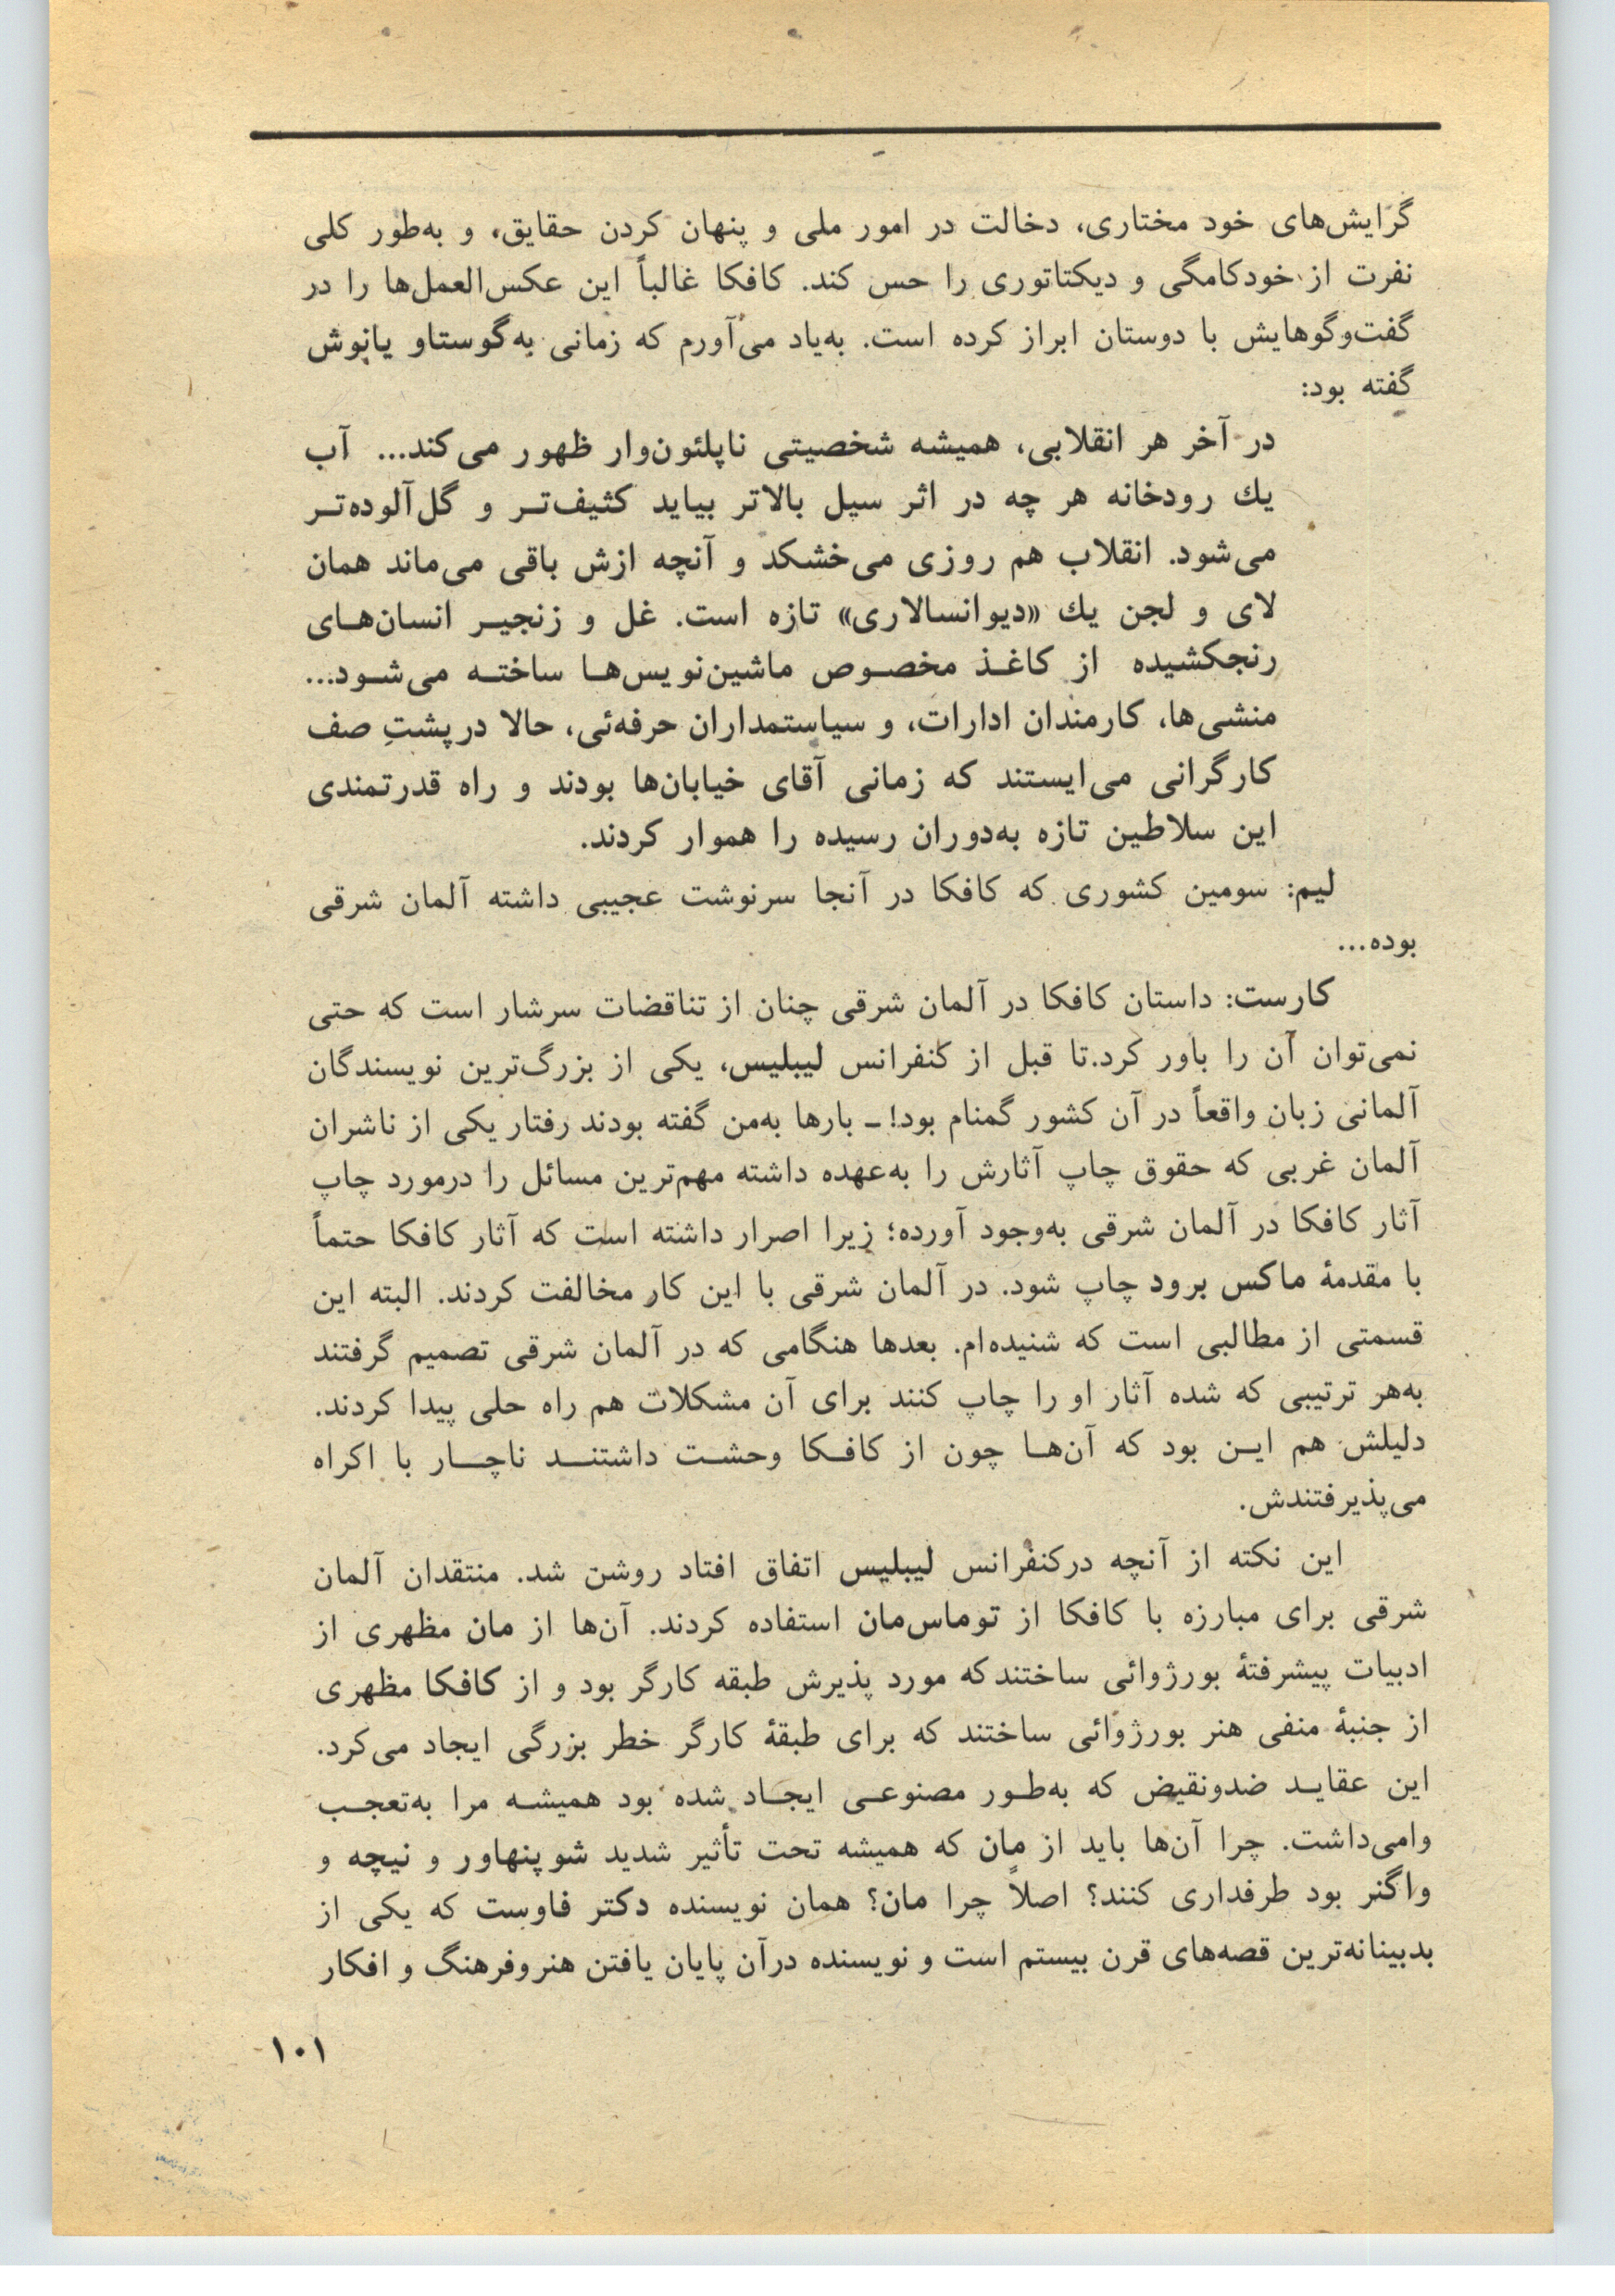 گرایش‌های خود مختاری، دخالت در امور ملی و پنهان کردن حقایق، و به‌طور کلی
نفرت از خودکامگی و دیکتاتوری را حس کند. کافکا غالباً این عکس‌العمل‌ها را در
گفت‌وگوهایش با دوستان ابراز کرده است. به‌یاد می‌آورم که زمانی به‌گوستاو یانوش
گفته بود:
در آخر هر انقلابی، همیشه شخصیتی ناپلئون‌وار ظهور می‌کند... آب
یك رودخانه هر چه در اثر سیل بالاتر بیاید کثیف‌تـر و گل‌آلوده‌تـر
می‌شود. انقلاب هم روزی می‌خشکد و آنچه ازش باقی می‌ماند همان
لای و لجن یك «دیوانسالاری» تازه است. غل و زنجیـر انسان‌هـای
رنجکشیده از کاغـذ مخصـوص ماشین‌نویس‌هـا ساختـه می‌شـود...
منشی‌ها، کارمندان ادارات، و سیاستمداران حرفه‌ئی، حالا درپشتِ صف
کارگرانی می‌ایستند که زمانی آقای خیابان‌ها بودند و راه قدرتمندی
این سلاطین تازه به‌دوران رسیده را هموار کردند.
لیم: سومین کشوری که کافکا در آنجا سرنوشت عجیبی داشته آلمان شرقی
بوده...
کارست: داستان کافکا در آلمان شرقی چنان از تناقضات سرشار است که حتی
نمی‌توان آن را باور کرد.تا قبل از کنفرانس لیبلیس، یکی از بزرگ‌ترین نویسندگان
آلمانی زبان واقعاً در آن کشور گمنام بود! ــ بارها به‌من گفته بودند رفتار یکی از ناشران
آلمان غربی که حقوق چاپ آثارش را به‌عهده داشته مهم‌ترین مسائل را درمورد چاپ
آثار کافکا در آلمان شرقی به‌وجود آورده؛ زیرا اصرار داشته است که آثار کافکا حتماً
با مقدمهٔ ماکس برود چاپ شود. در آلمان شرقی با این کار مخالفت کردند. البته این
قسمتی از مطالبی است که شنیده‌ام. بعدها هنگامی که در آلمان شرقی تصمیم گرفتند
به‌هر ترتیبی که شده آثار او را چاپ کنند برای آن مشکلات هم راه حلی پیدا کردند.
دلیلش هم ایـن بود که آن‌هـا چون از کافـکا وحشـت داشتنـد ناچـار با اکراه
می‌پذیرفتندش.
این نکته از آنچه درکنفرانس لیبلیس اتفاق افتاد روشن شد. منتقدان آلمان
شرقی برای مبارزه با کافکا از توماس‌مان استفاده کردند. آن‌ها از مان مظهری از
ادبیات پیشرفتهٔ بورژوائی ساختندکه مورد پذیرش طبقه کارگر بود و از کافکا مظهری
از جنبهٔ منفی هنر بورژوائی ساختند که برای طبقهٔ کارگر خطر بزرگی ایجاد می‌کرد.
این عقایـد ضدونقیض که به‌طـور مصنوعـی ایجـاد شده بود همیشـه مرا به‌تعجـب
وامی‌داشت. چرا آن‌ها باید از مان که همیشه تحت تأثیر شدید شوپنهاور و نیچه و
واگنر بود طرفداری کنند؟ اصلاً چرا مان؟ همان نویسنده دکتر فاوست که یکی از
بدبینانه‌ترین قصه‌های قرن بیستم است و نویسنده درآن پایان یافتن هنروفرهنگ و افکار
۱۰۱